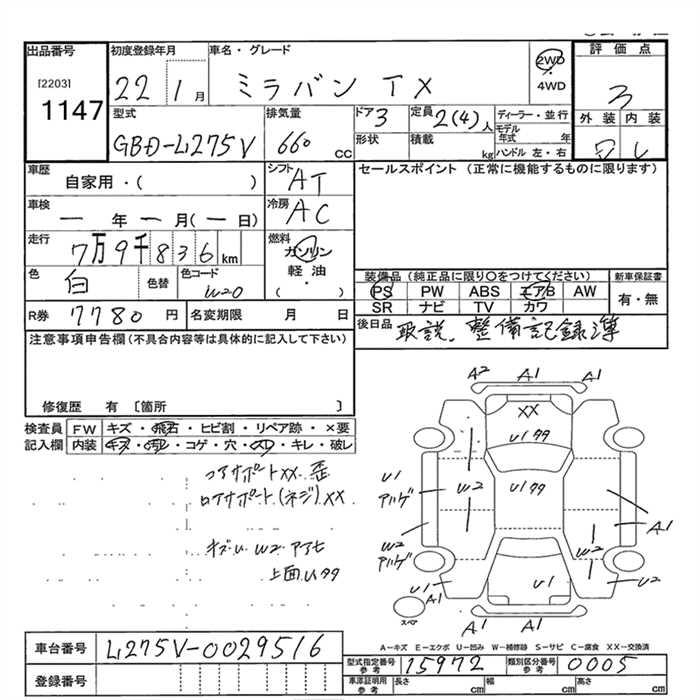 出品番号
[2203]
1147
初度登録年月
22 1月
車名・グレード
ミラバン TX
2WD
・
4WD
評価点
3
外装 内装
型式
GBD-L275V
排気量
660 cc
ドア 3
形状
定員 2(4)人
積載 kg
ディーラー・並行
モデル年式 年
ハンドル 左・右
車歴
自家用・( )
シフト AT
セールスポイント (正常に機能するものに限ります)
車検
一年一月(一日)
冷房 AC
走行
7万9千836km
燃料
ガソリン
軽油・
( )
色 白
色替
色コード W20
装備品 (純正品に限り○をつけてください)
新車保証書
PS PW ABS エアB AW
有・無
SR ナビ TV カワ
R券 7780円
名変期限 月 日
後日品 取説、整備記録簿
注意事項申告欄 (不具合内容等は具体的に記入して下さい)
修復歴 有 [箇所 ]
検査員 FW キズ・飛石・ヒビ割・リペア跡・×要
記入欄 内装 キズ・汚れ・コゲ・穴・スレ・キレ・破レ
コアサポートXX 歪
ロアサポート(ネジ)XX
キズU W2 アアセ
上面Uタタ
A2 A1 A1
XX
Uタタ
U1
アルゲ
W2
Uタタ
W2
アルゲ
A1
W2
U1
A1
U1
U2
A1
スペア
A1 A1
A-キズ E-エクボ U-凹み W-補修跡 S-サビ C-腐食 XX-交換済
車台番号 L275V-0029516
型式指定番号 参考 15972
類別区分番号 参考 0005
登録番号
車庫証明用 参考 長さ cm 幅 cm 高さ cm